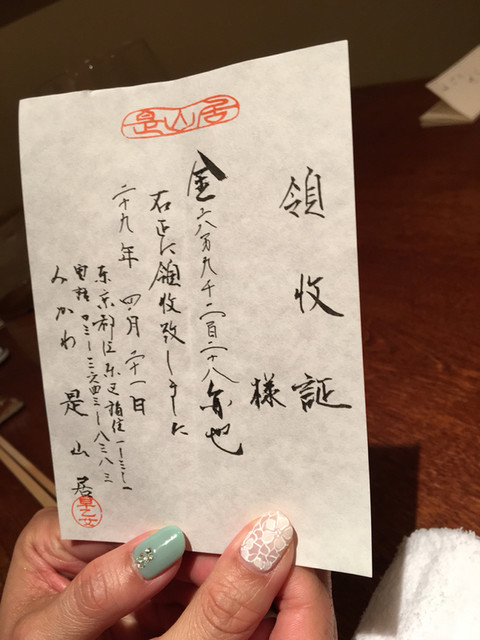 是山居
領収証
様
金六万九千二百二十八円也
右正に領収致しました
二十九年 四月 二十一日
東京都江東区福住一ー三ー一
電話〇三ー三六四三ー八三八三
みかわ 是山居
早乙女